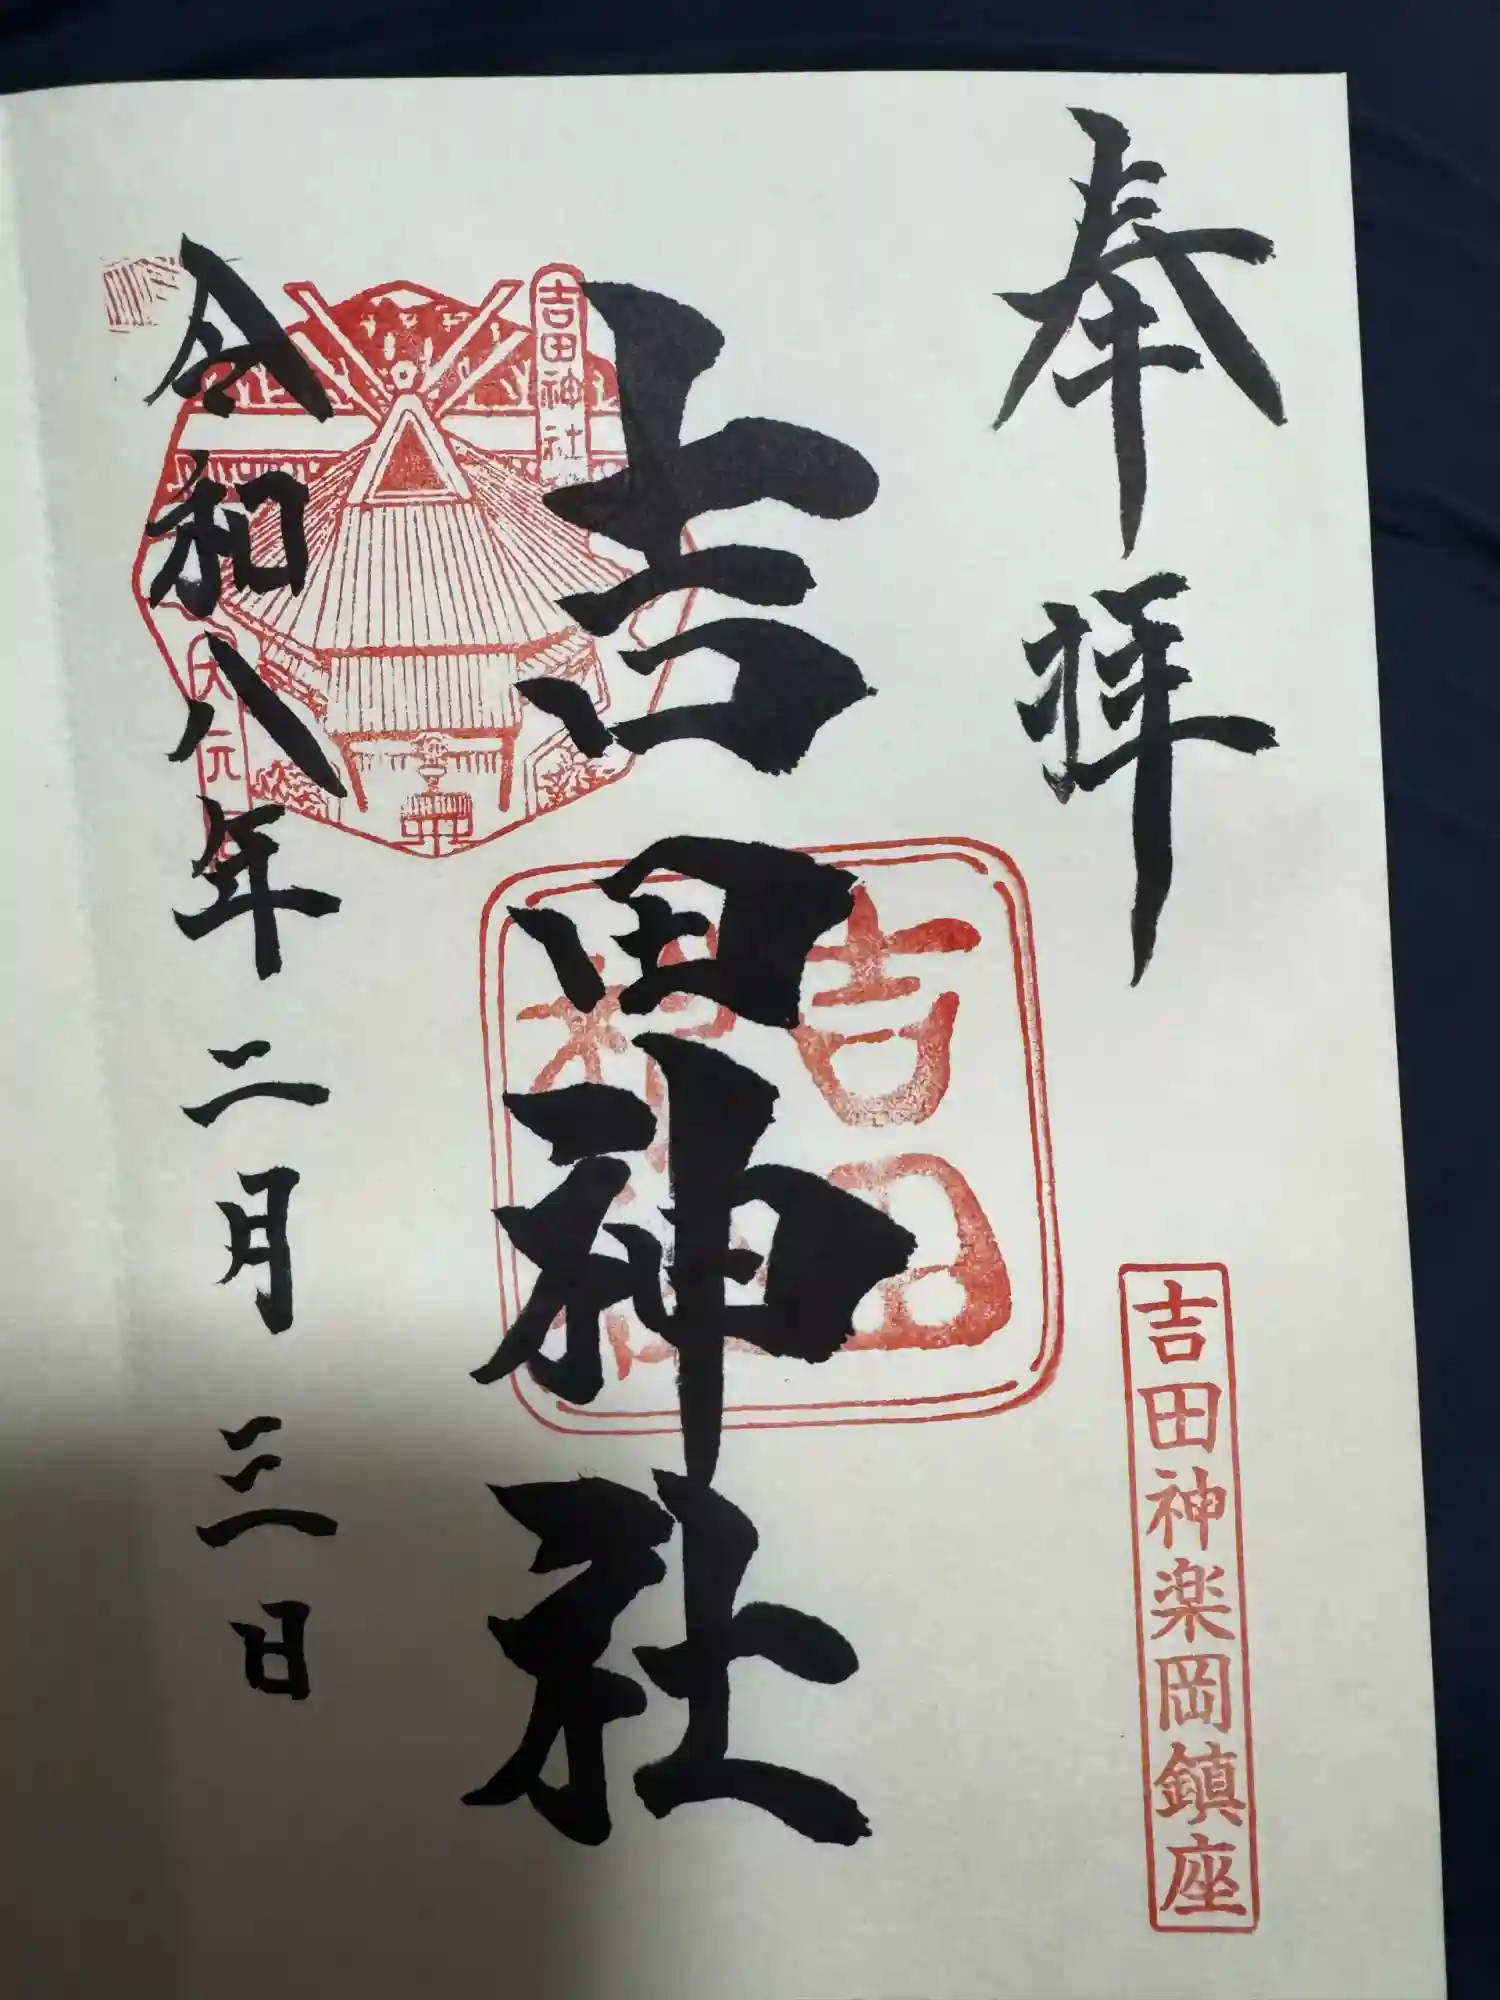 奉拝
吉田神楽岡鎮座
吉田神社
吉田
神社
吉田神社
大元宮
令和八年二月三日